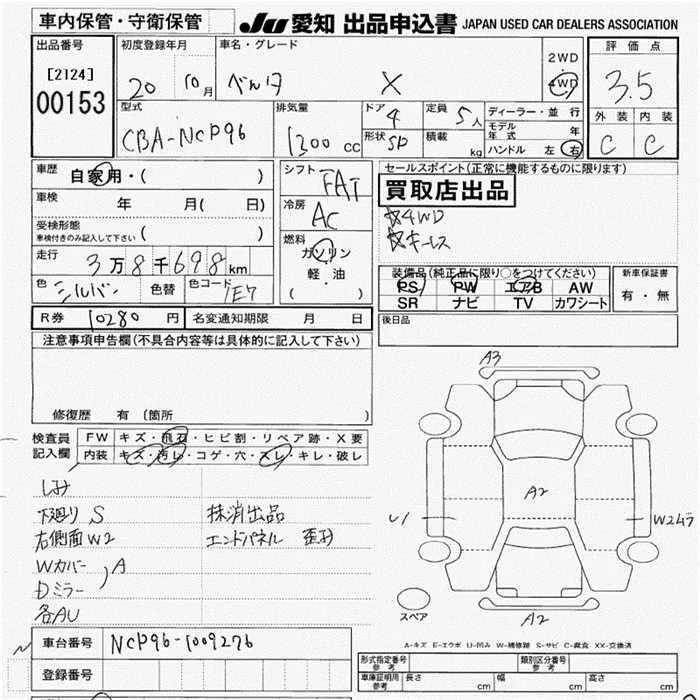 車内保管・守衛保管 JU 愛知 出品申込書 JAPAN USED CAR DEALERS ASSOCIATION
出品番号 初度登録年月 車名・グレード 2WD 評価点
[2124] 20 10月 べルタ X 4WD 3.5
00153
型式 排気量 ドア 4 定員 5人 ディーラー・並行 外装 内装
CBA-NCP96 1300cc 形状 SD 積載 kg モデル年式 年 C C
ハンドル 左 右
車歴 自家用・( ) シフト FAT セールスポイント(正常に機能するものに限ります)
車検 年 月( 日) 冷房 AC 買取店出品
受検形態 車検付きのみ記入して下さい ( ) ☆4WD
燃料 ガソリン ☆キーレス
走行 3万8千698km 軽・油 装備品(純正品に限り○をつけてください) 新車保証書
色 シルバー 色替 色コード 1E7 ( ) PS PW エアB AW 有・無
SR ナビ TV カワシート
R券 10280円 名変通知期限 月 日 後日品
注意事項申告欄(不具合内容等は具体的に記入して下さい)
A3
修復歴 有 (箇所 )
検査員記入欄 FW キズ・飛石・ヒビ割・リペア跡・X要
内装 キズ・汚レ・コゲ・穴・スレ・キレ・破レ
しみ A2
下廻りS 抹消出品 U1 W2ムラ
右側面W2 エンドパネル 歪み
Wカバー A
Dミラー
各AU スペア A2
A-キズ E-エクボ U-凹み W-補修跡 S-サビ C-腐食 XX-交換済
車台番号 NCP96-1009276
形式指定番号 参考 類別区分番号 参考
登録番号 車庫証明用 参考 長さ cm 幅 cm 高さ cm